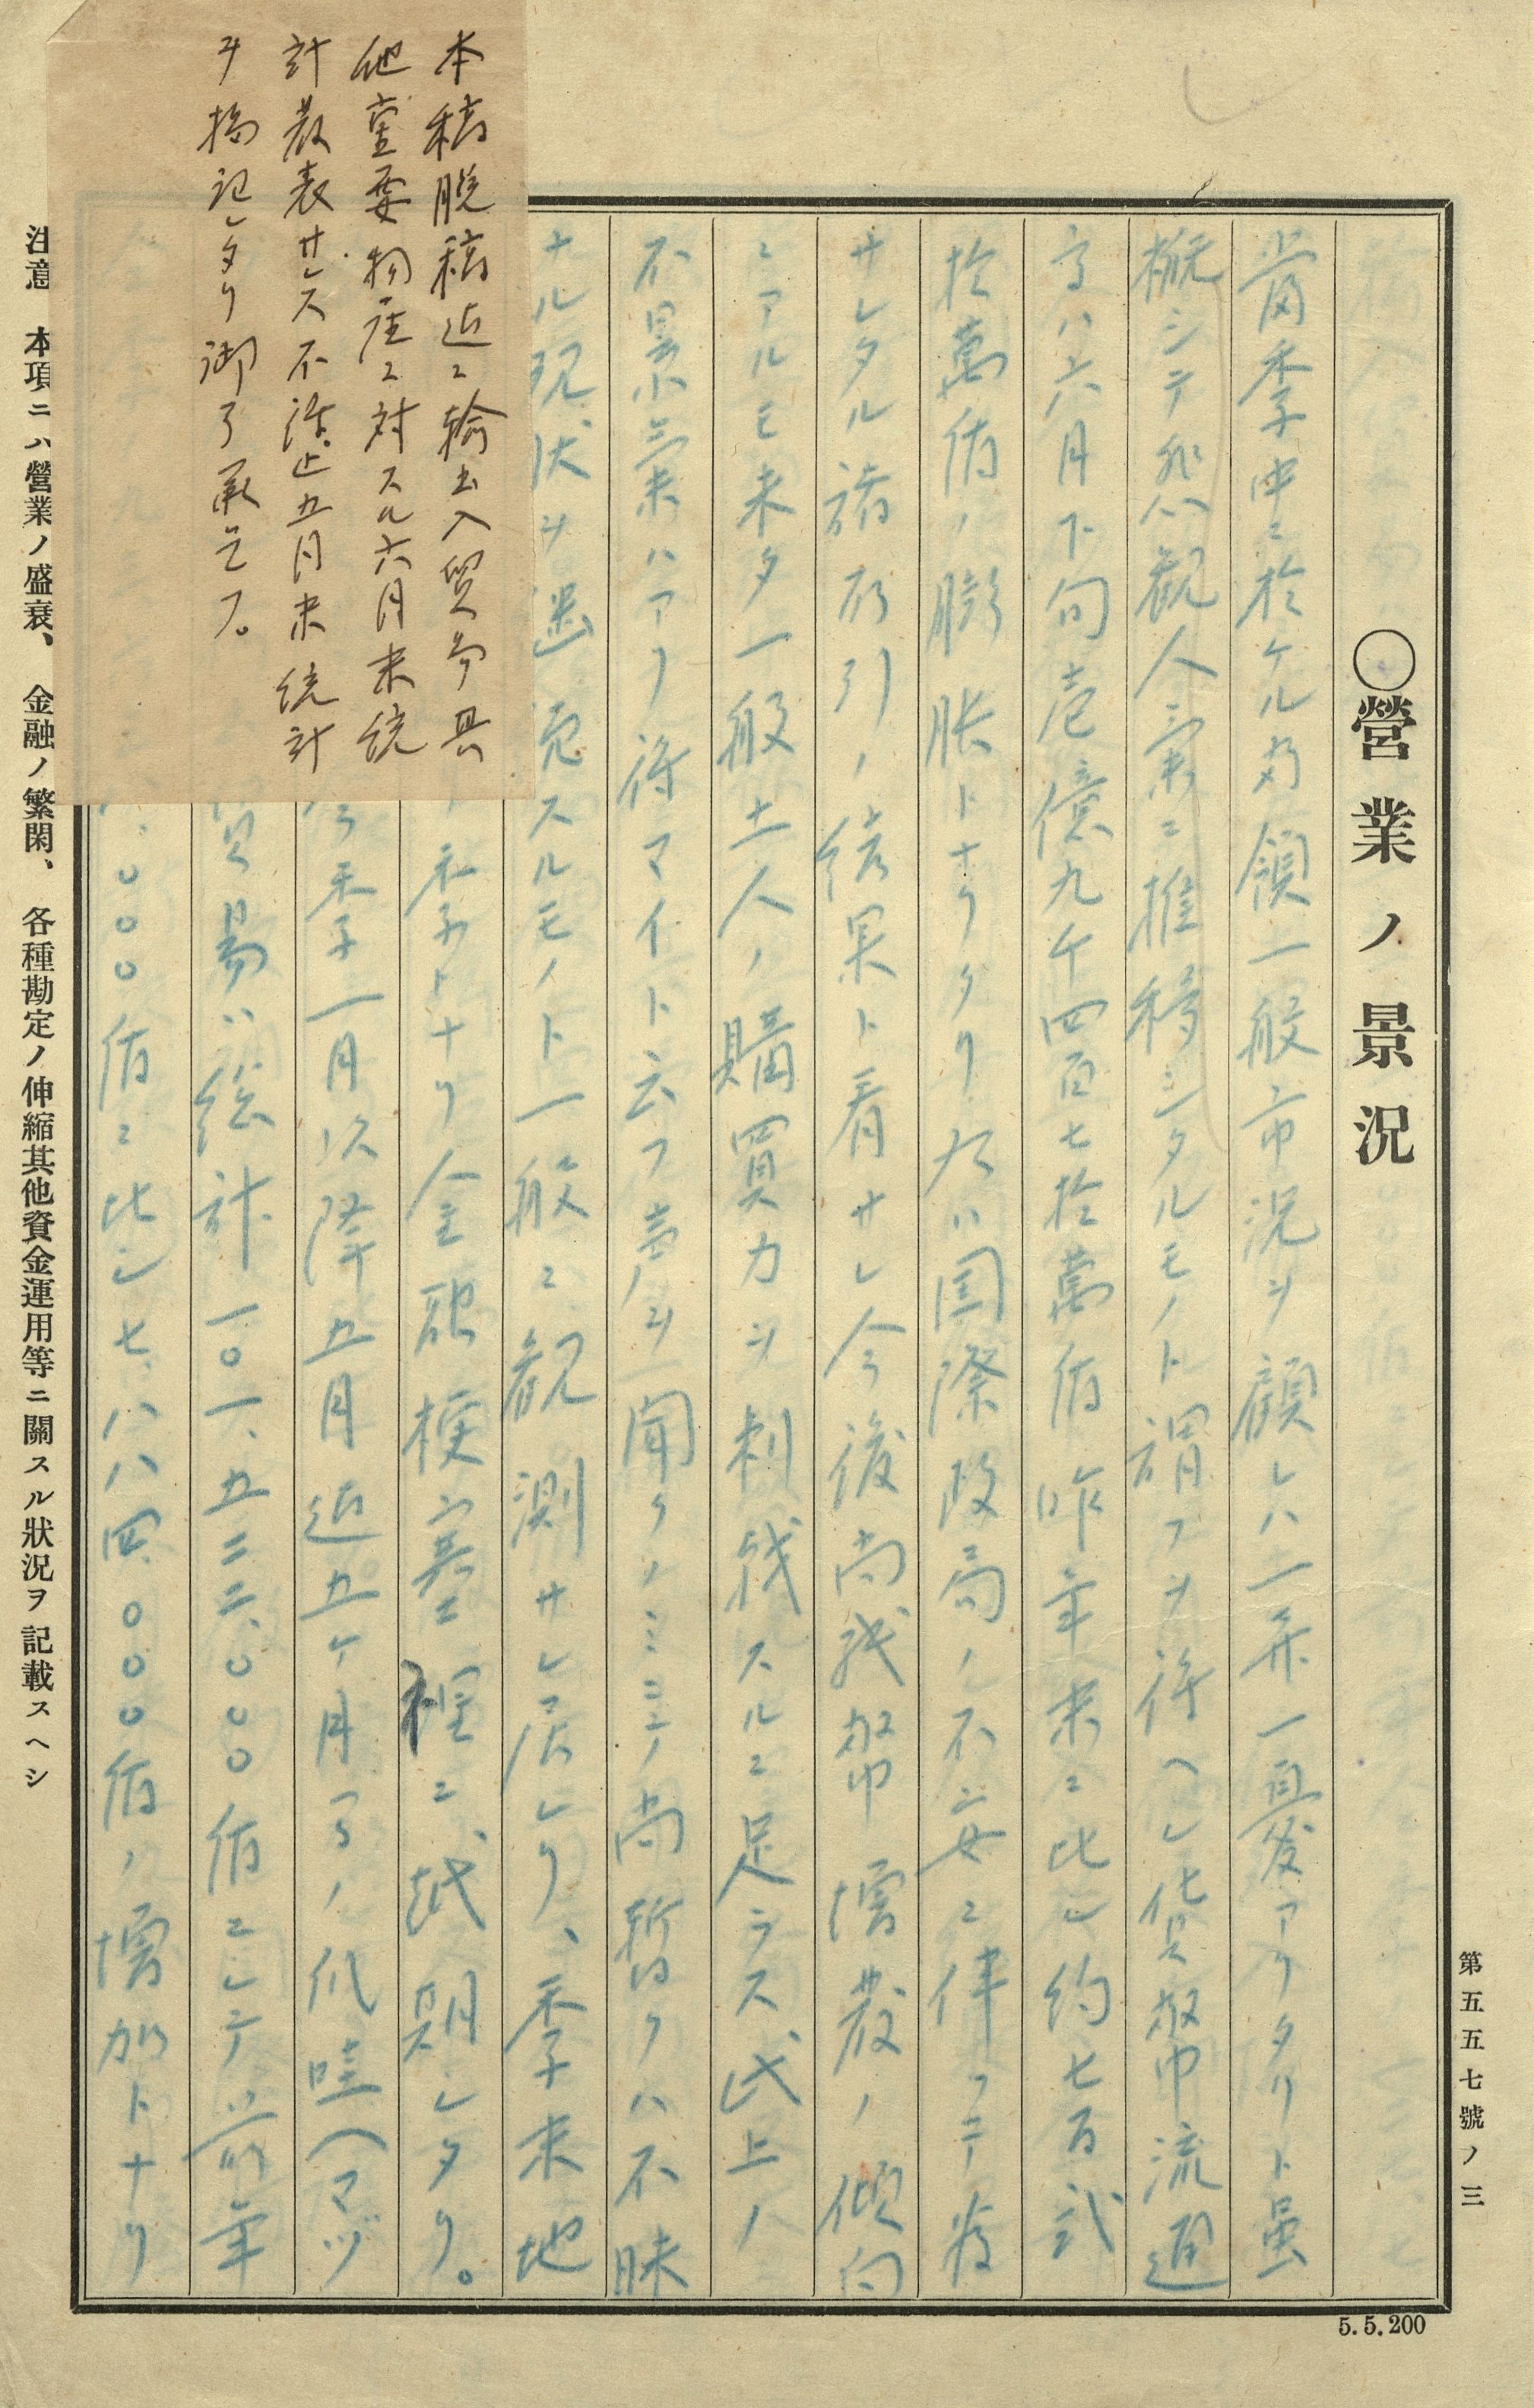 ◯營業ノ景況
當季中ニ於ケル蘭領一般市況ヲ顧レハ一弗一憂アリタリト虽
概シテ悲觀人氣ニ推移シタルモノト謂フヲ得ヘレ貨幣流通
高ハ六月下旬壱億九千四百七拾萬盾昨年末ニ比し約七百弐
拾萬盾ノ膨脹トナリタリ右ハ国際政局ノ不安ニ伴フテ為
サレタル諸取引ノ結果ト看サレ今後尚武幣増發ノ傾向
ニアルモ未タ一般土人ノ購買力ヲ刺戟スルニ足ラス、此上ノ
不景氣ハアリ得マイト云フ声ヲ聞クノミニテ尚暫クハ不味
ナル現状ヲ
スルモノト一般ニ観測サレ居レリ、季末地
季トナリ金融梗塞裡ニ、越期シタリ。
今季一月以降五月迄五ケ月間ノ爪哇(マヅ
貿易ハ総計一〇一、五三二、〇〇〇盾ニシテ前年
、〇〇〇盾ニ比シ七、八八四、〇〇〇盾ノ増加トナリ
本稿脱稿迄ニ輸出入貿易其
他重要物産ニ対スル六月末統
計發表サレス不得止五月末統計
ヲ摘記シタリ御了承乞フ。
注意 本項ニハ營業ノ盛衰、金融ノ繁閑、各種勘定ノ伸縮其他資金運用等ニ關スル狀況ヲ記載スヘシ
第五五七號ノ三
5.5.200